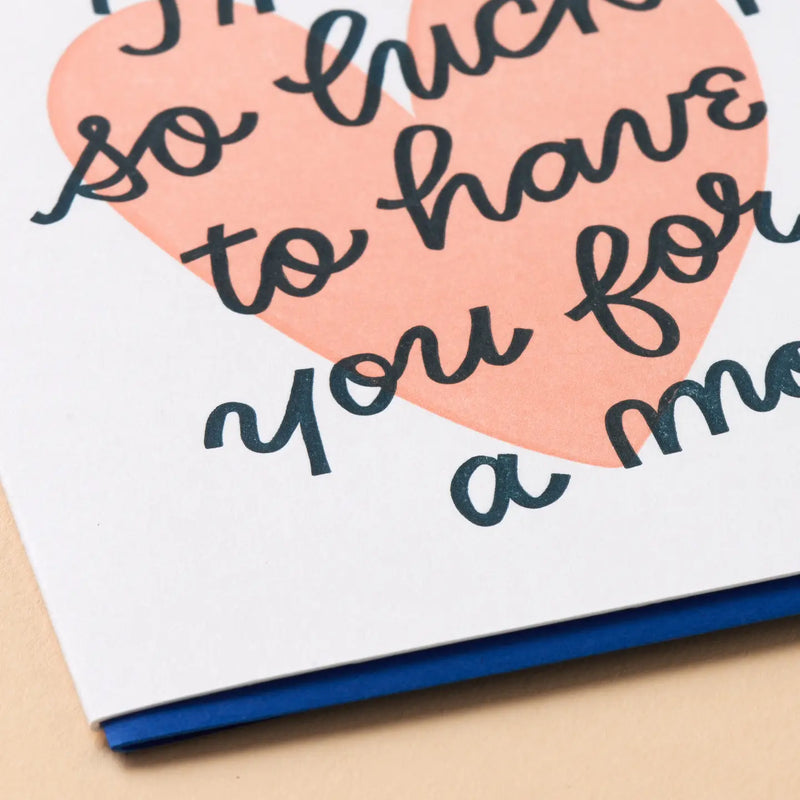 so lucky
to have
you for
a mo